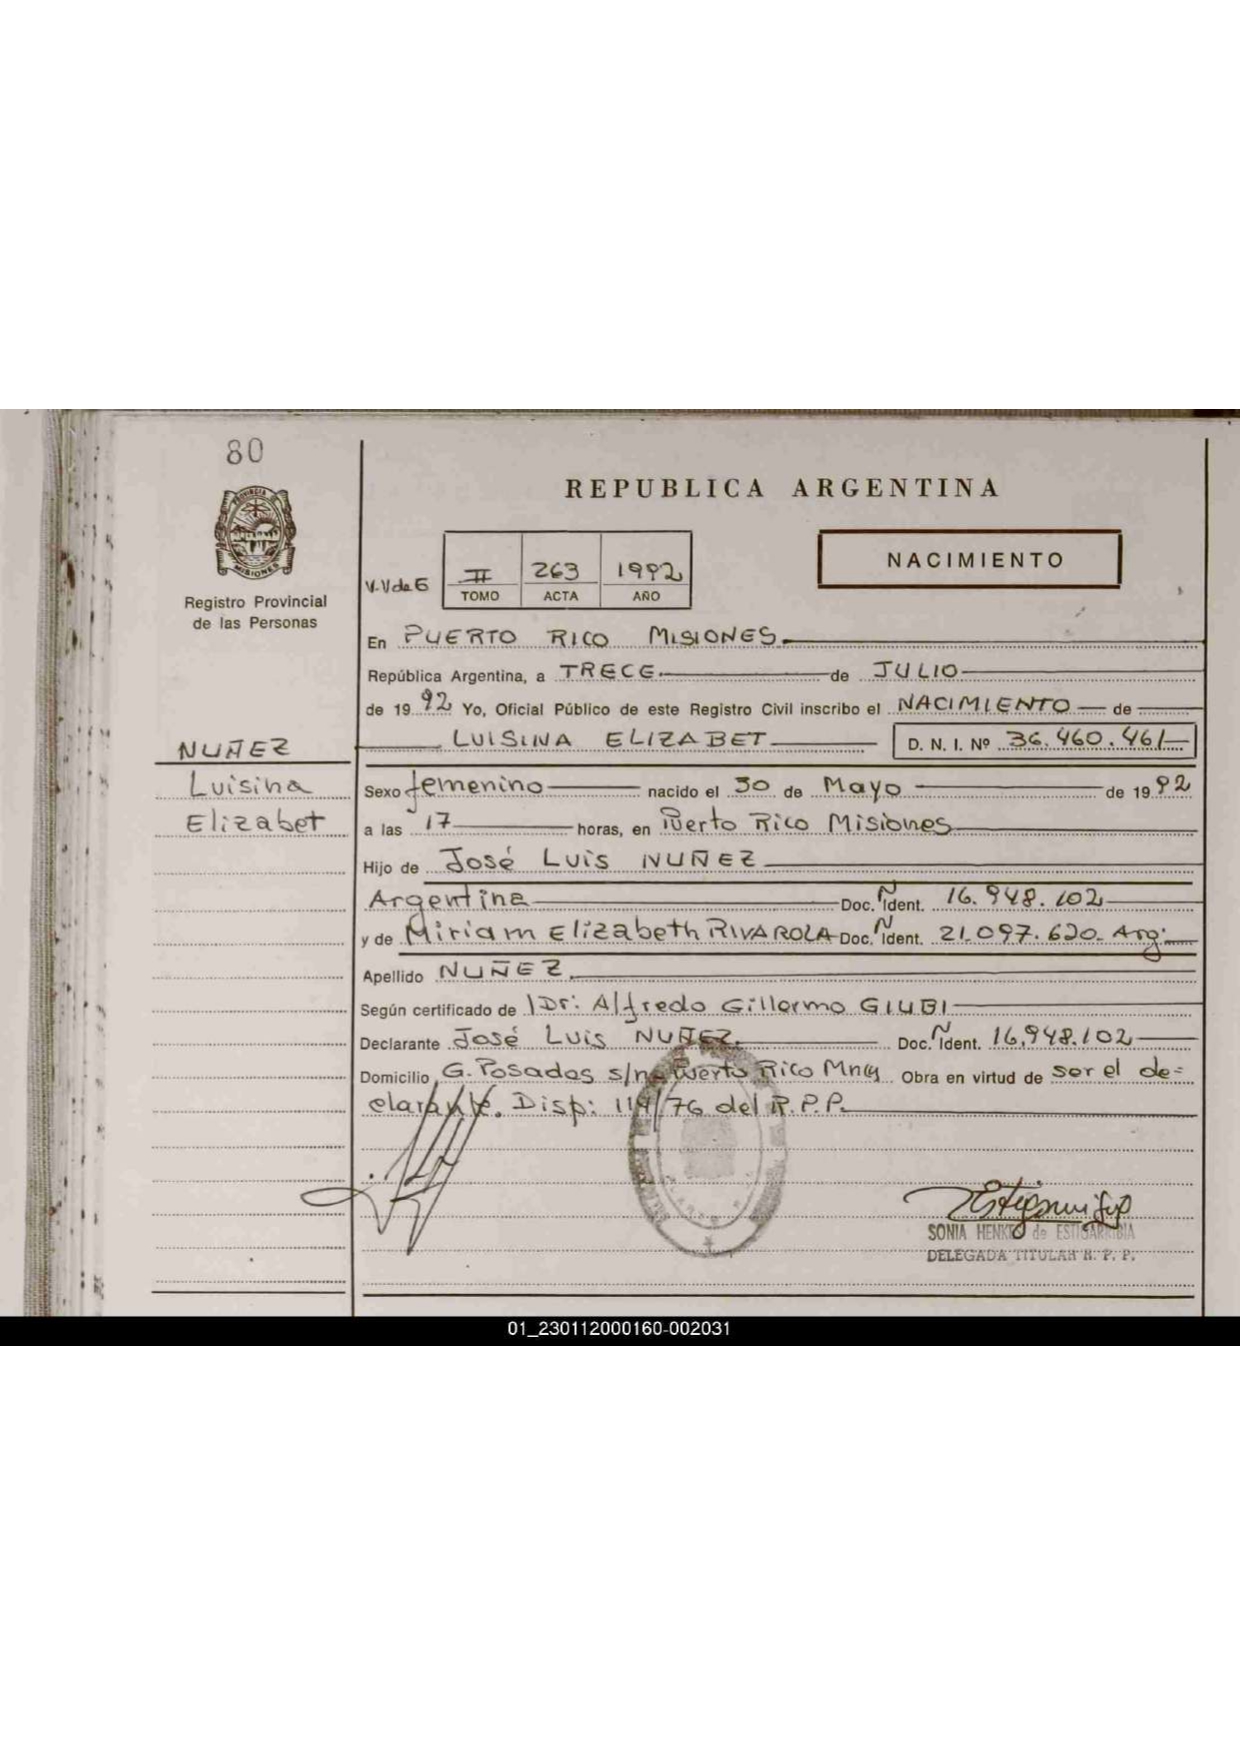 80
PROVINCIA DE
MISIONES
Registro Provincial
de las Personas
NUÑEZ
Luisina
Elizabet
REPUBLICA ARGENTINA
NACIMIENTO
V.V de E
II 263 1992
TOMO ACTA AÑO
En PUERTO RICO MISIONES
República Argentina, a TRECE de JULIO
de 19 92 Yo, Oficial Público de este Registro Civil inscribo el NACIMIENTO de
LUISINA ELIZABET D. N. I. Nº 36.460.461
Sexo femenino nacido el 30 de Mayo de 19 92
a las 17 horas, en Puerto Rico Misiones
Hijo de José Luis NUÑEZ
Argentina Doc. Ñ Ident. 16.948.102
y de Miriam Elizabeth RIVAROLA Doc. Ñ Ident. 21.097.620. Arg.
Apellido NUÑEZ
Según certificado de Dr: Alfredo Gillermo GIUBI
Declarante José Luis NUÑEZ. Doc. Ñ Ident. 16.948.102
Domicilio G. Posadas s/nº Puerto Rico Mnes Obra en virtud de ser el de=
clarante. Disp: 119/76 del R.P.P.
SONIA HENKE de ESTIGARRIBIA
DELEGADA TITULAR R. P. P.
01_230112000160-002031